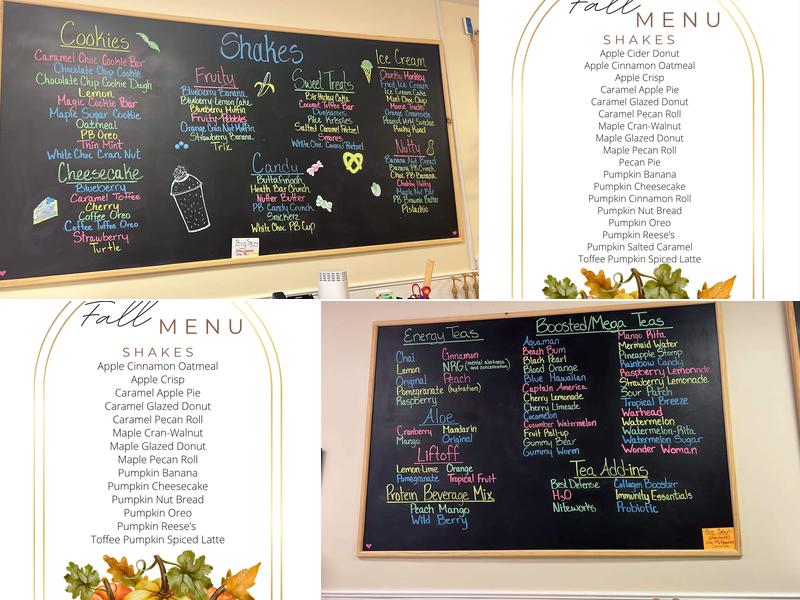 Shakes
Cookies
Caramel Choc Cookie Bar
Chocolate Chip Cookie
Chocolate Chip Cookie Dough
Lemon
Magic Cookie Bar
Maple Sugar Cookie
Oatmeal
PB Oreo
Thin Mint
White Choc Cran Nut
Cheesecake
Blueberry
Caramel Toffee
Cherry
Coffee Oreo
Coffee Toffee Oreo
Strawberry
Turtle
Fruity
Blueberry Banana
Blueberry Lemon Cake
Blueberry Muffin
Fruity Pebbles
Orange Cran Nut Muffin
Strawberry Banana
Trix
Sweet Treats
Birthday Cake
Coconut Toffee Bar
Rice Krispies
Salted Caramel Pretzel
Smores
White Choc Pretzel
Candy
Butterfingah
Heath Bar Crunch
Nutter Butter
PB Candy Crunch
Snickerz
White Choc PB Cup
Ice Cream
Chunky Monkey
Fried Ice Cream
Ice Cream Cake
Mint Choc Chip
Moose Tracks
Orange Creamsicle
Peanut Butter Sundae
Rocky Road
Nutty
Banana Nut Bread
Banana PB Crunch
Choc PB Banana
Chubby Hubby
Maple Nut Bar
PB Brownie Batter
Pistachio
Fall
MENU
SHAKES
Apple Cider Donut
Apple Cinnamon Oatmeal
Apple Crisp
Caramel Apple Pie
Caramel Glazed Donut
Caramel Pecan Roll
Maple Cran-Walnut
Maple Glazed Donut
Maple Pecan Roll
Pecan Pie
Pumpkin Banana
Pumpkin Cheesecake
Pumpkin Cinnamon Roll
Pumpkin Nut Bread
Pumpkin Oreo
Pumpkin Reese's
Pumpkin Salted Caramel
Toffee Pumpkin Spiced Latte
Fall
MENU
SHAKES
Apple Cinnamon Oatmeal
Apple Crisp
Caramel Apple Pie
Caramel Glazed Donut
Caramel Pecan Roll
Maple Cran-Walnut
Maple Glazed Donut
Maple Pecan Roll
Pumpkin Banana
Pumpkin Cheesecake
Pumpkin Nut Bread
Pumpkin Oreo
Pumpkin Reese's
Toffee Pumpkin Spiced Latte
Energy Teas
Chai
Lemon
Original
Pomegranate
Raspberry
Cinnamon
NRG (mental alertness and concentration)
Peach
(hydration)
Aloe
Cranberry Mandarin
Mango Original
Liftoff
Lemon-Lime Orange
Pomegranate Tropical Fruit
Protein Beverage Mix
Peach Mango
Wild Berry
Boosted/Mega Teas
Aquaman
Beach Bum
Black Pearl
Blood Orange
Blue Hawaiian
Captain America
Cherry Lemonade
Cherry Limeade
Cocomelon
Cucumber Watermelon
Fruit Roll-up
Gummy Bear
Gummy Worm
Mango Rita
Mermaid Water
Pineapple Stomp
Rainbow Candy
Raspberry Lemonade
Strawberry Lemonade
Sour Patch
Tropical Breeze
Warhead
Watermelon
Watermelon-Rita
Watermelon Sugar
Wonder Woman
Tea Add-ins
Best Defense Collagen Booster
H2O Immunity Essentials
Niteworks Probiotic